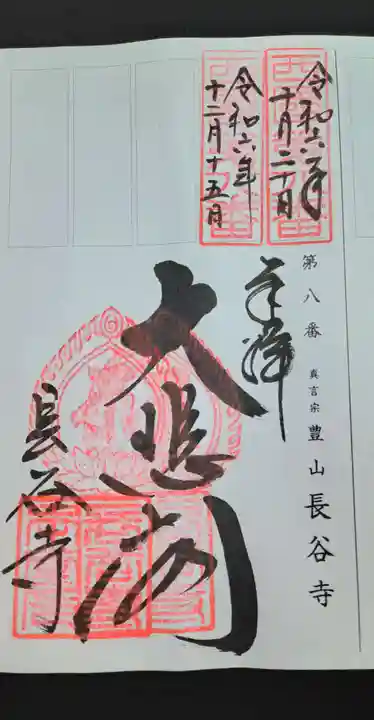 令和六年
十月二十日
令和六年
十二月十五日
第八番 真言宗 豊山長谷寺
奉拝
大悲閣
長谷寺